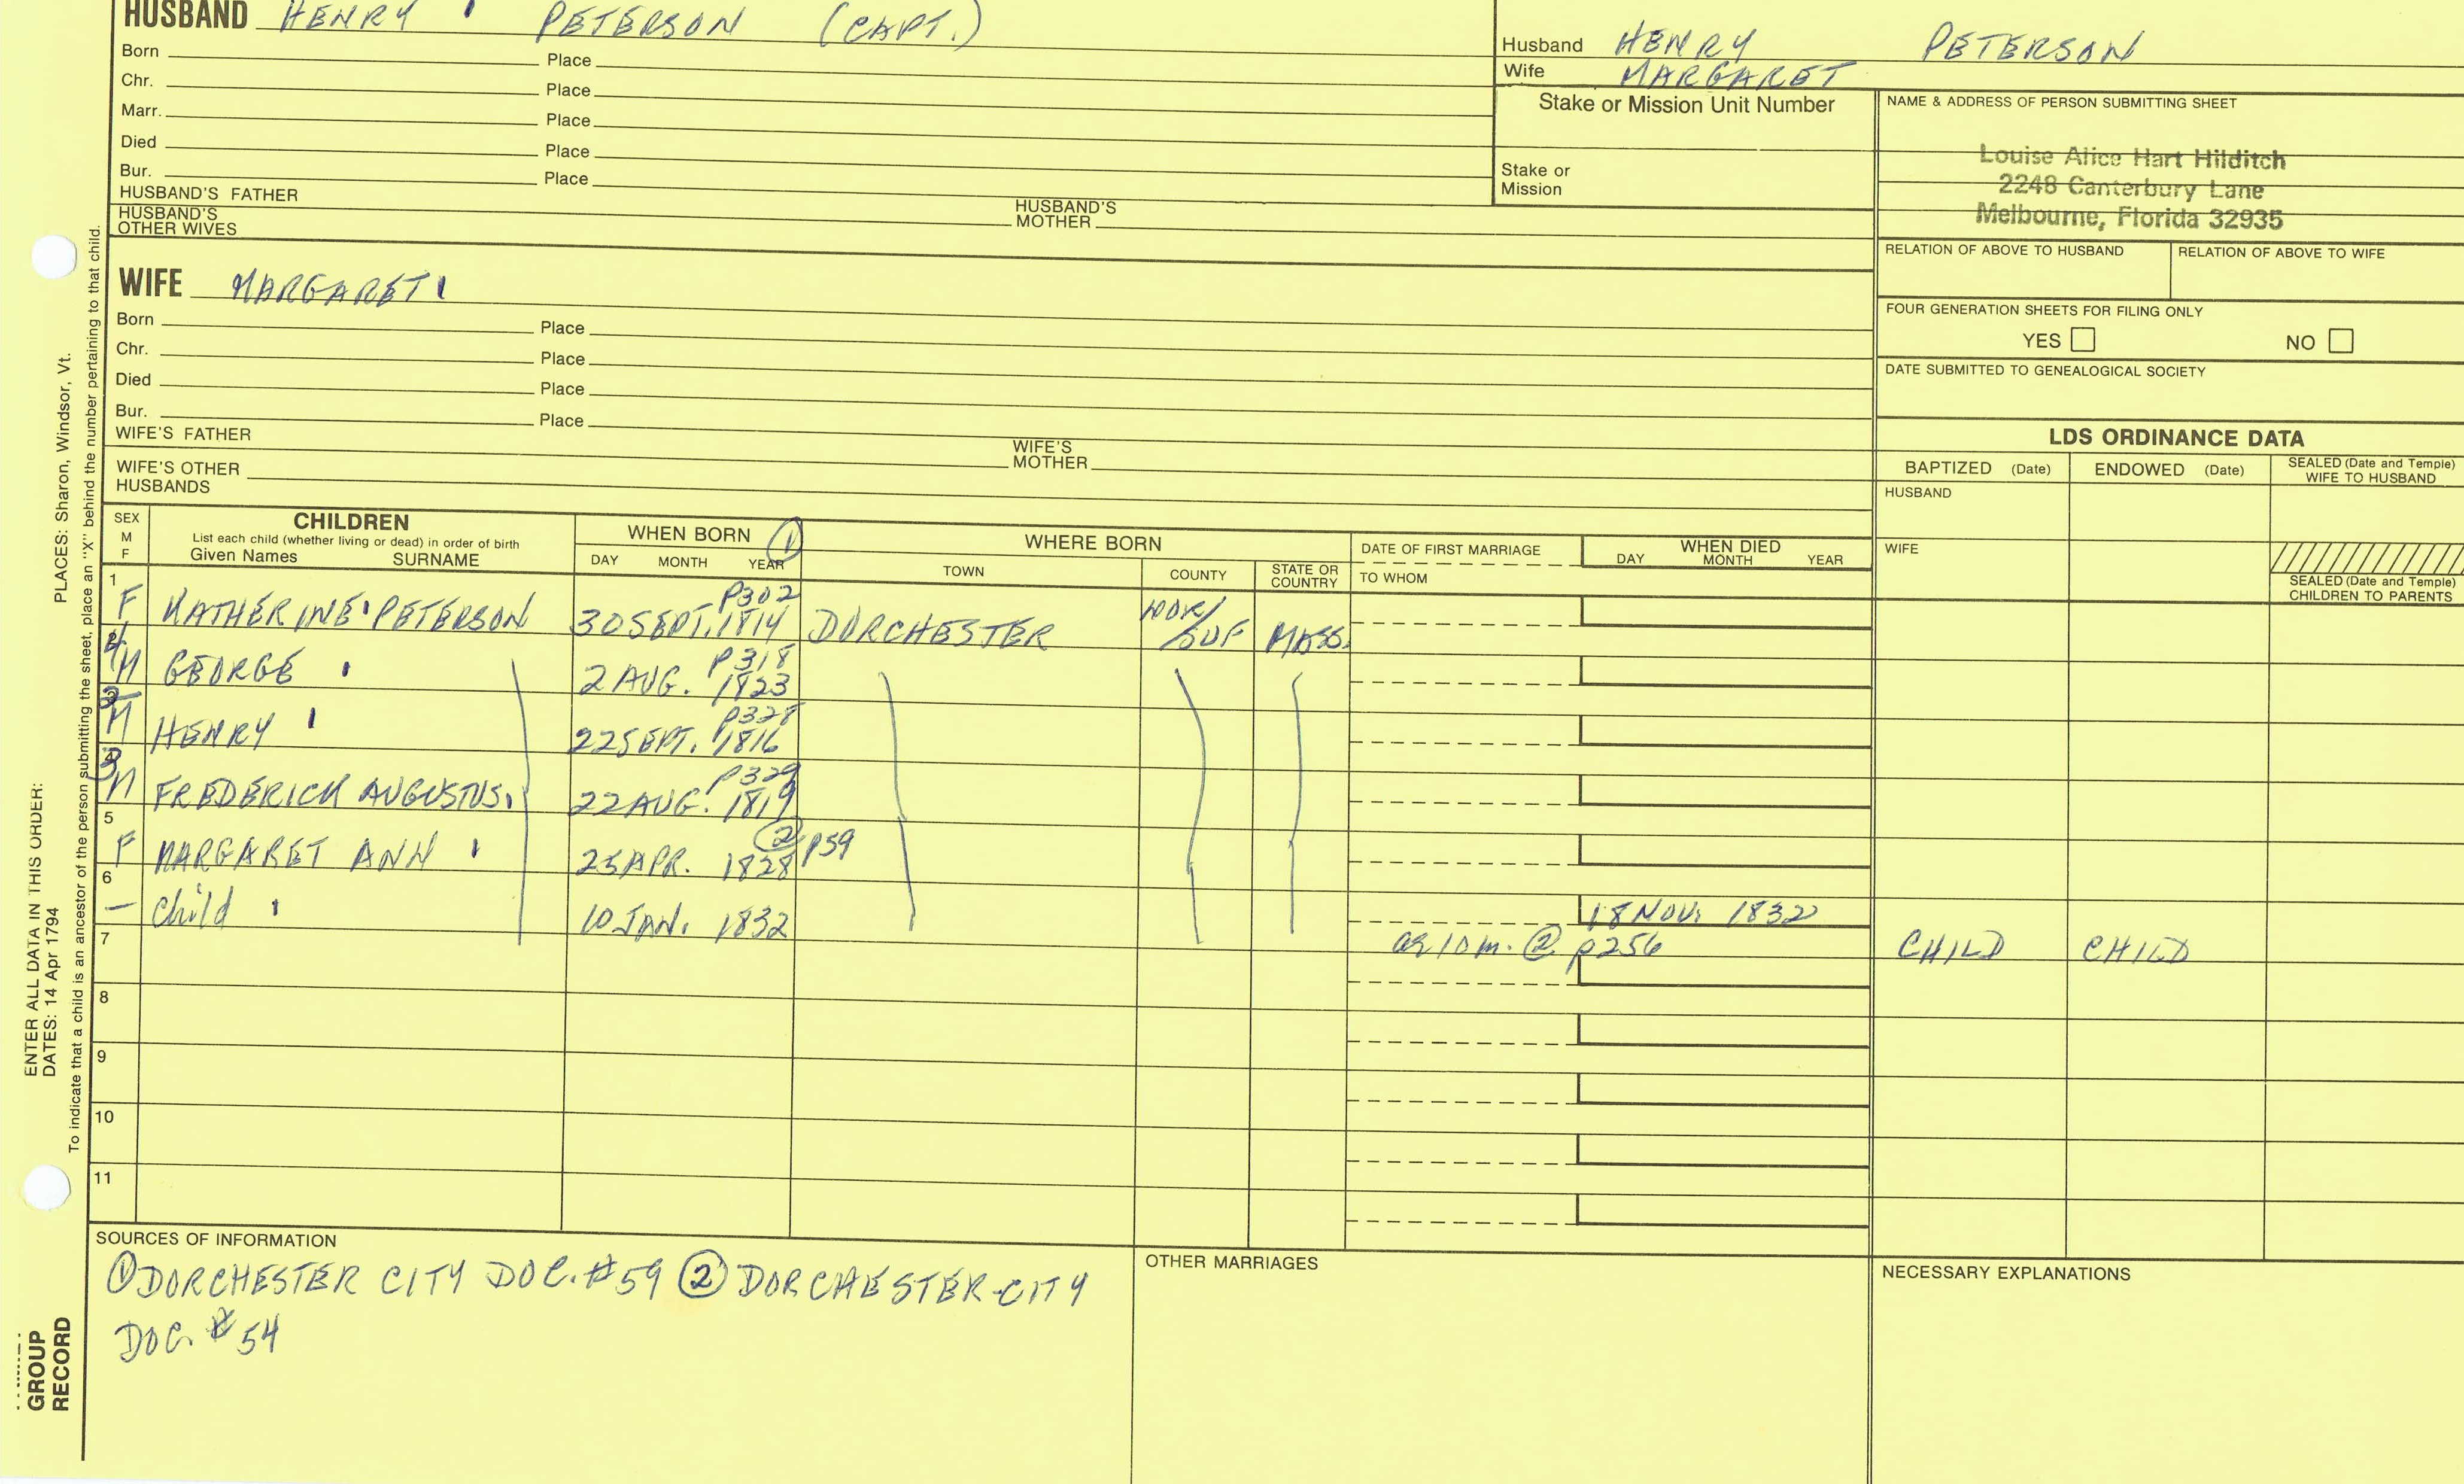 HUSBAND HENRY PETERSON (CAPT.)
Born Place
Chr. Place
Marr. Place
Died Place
Bur. Place
HUSBAND'S FATHER HUSBAND'S MOTHER
HUSBAND'S OTHER WIVES
Husband HENRY PETERSON
Wife MARGARET
Stake or Mission Unit Number
Stake or Mission
NAME & ADDRESS OF PERSON SUBMITTING SHEET
Louise Alice Hart Hilditch
2248 Canterbury Lane
Melbourne, Florida 32935
RELATION OF ABOVE TO HUSBAND RELATION OF ABOVE TO WIFE
FOUR GENERATION SHEETS FOR FILING ONLY
YES NO
DATE SUBMITTED TO GENEALOGICAL SOCIETY
WIFE MARGARET
Born Place
Chr. Place
Died Place
Bur. Place
WIFE'S FATHER WIFE'S MOTHER
WIFE'S OTHER HUSBANDS
LDS ORDINANCE DATA
BAPTIZED (Date) ENDOWED (Date) SEALED (Date and Temple) WIFE TO HUSBAND
HUSBAND
WIFE
SEALED (Date and Temple) CHILDREN TO PARENTS
SEX M F
CHILDREN
List each child (whether living or dead) in order of birth
Given Names SURNAME
WHEN BORN ①
DAY MONTH YEAR
WHERE BORN
TOWN COUNTY STATE OR COUNTRY
DATE OF FIRST MARRIAGE
TO WHOM
WHEN DIED
DAY MONTH YEAR
1 F KATHERINE PETERSON 30 SEPT. 1814 P302 DORCHESTER NOR/SUF MASS.
4 M GEORGE 2 AUG. 1823 P318
M HENRY 22 SEPT. 1816 P328
3 M FREDERICK AUGUSTUS 22 AUG. 1819 P329
5 F MARGARET ANN 25 APR. 1828 ② P59
6 — Child 10 JAN. 1832 18 NOV. 1832
7 ag 10 m. ② p256 CHILD CHILD
8
9
10
11
SOURCES OF INFORMATION
① DORCHESTER CITY DOC. #59 ② DORCHESTER CITY
DOC. #54
OTHER MARRIAGES
NECESSARY EXPLANATIONS
PLACES: Sharon, Windsor, Vt.
ENTER ALL DATA IN THIS ORDER:
DATES: 14 Apr 1794
To indicate that a child is an ancestor of the person submitting the sheet, place an "X" behind the number pertaining to that child.
GROUP
RECORD